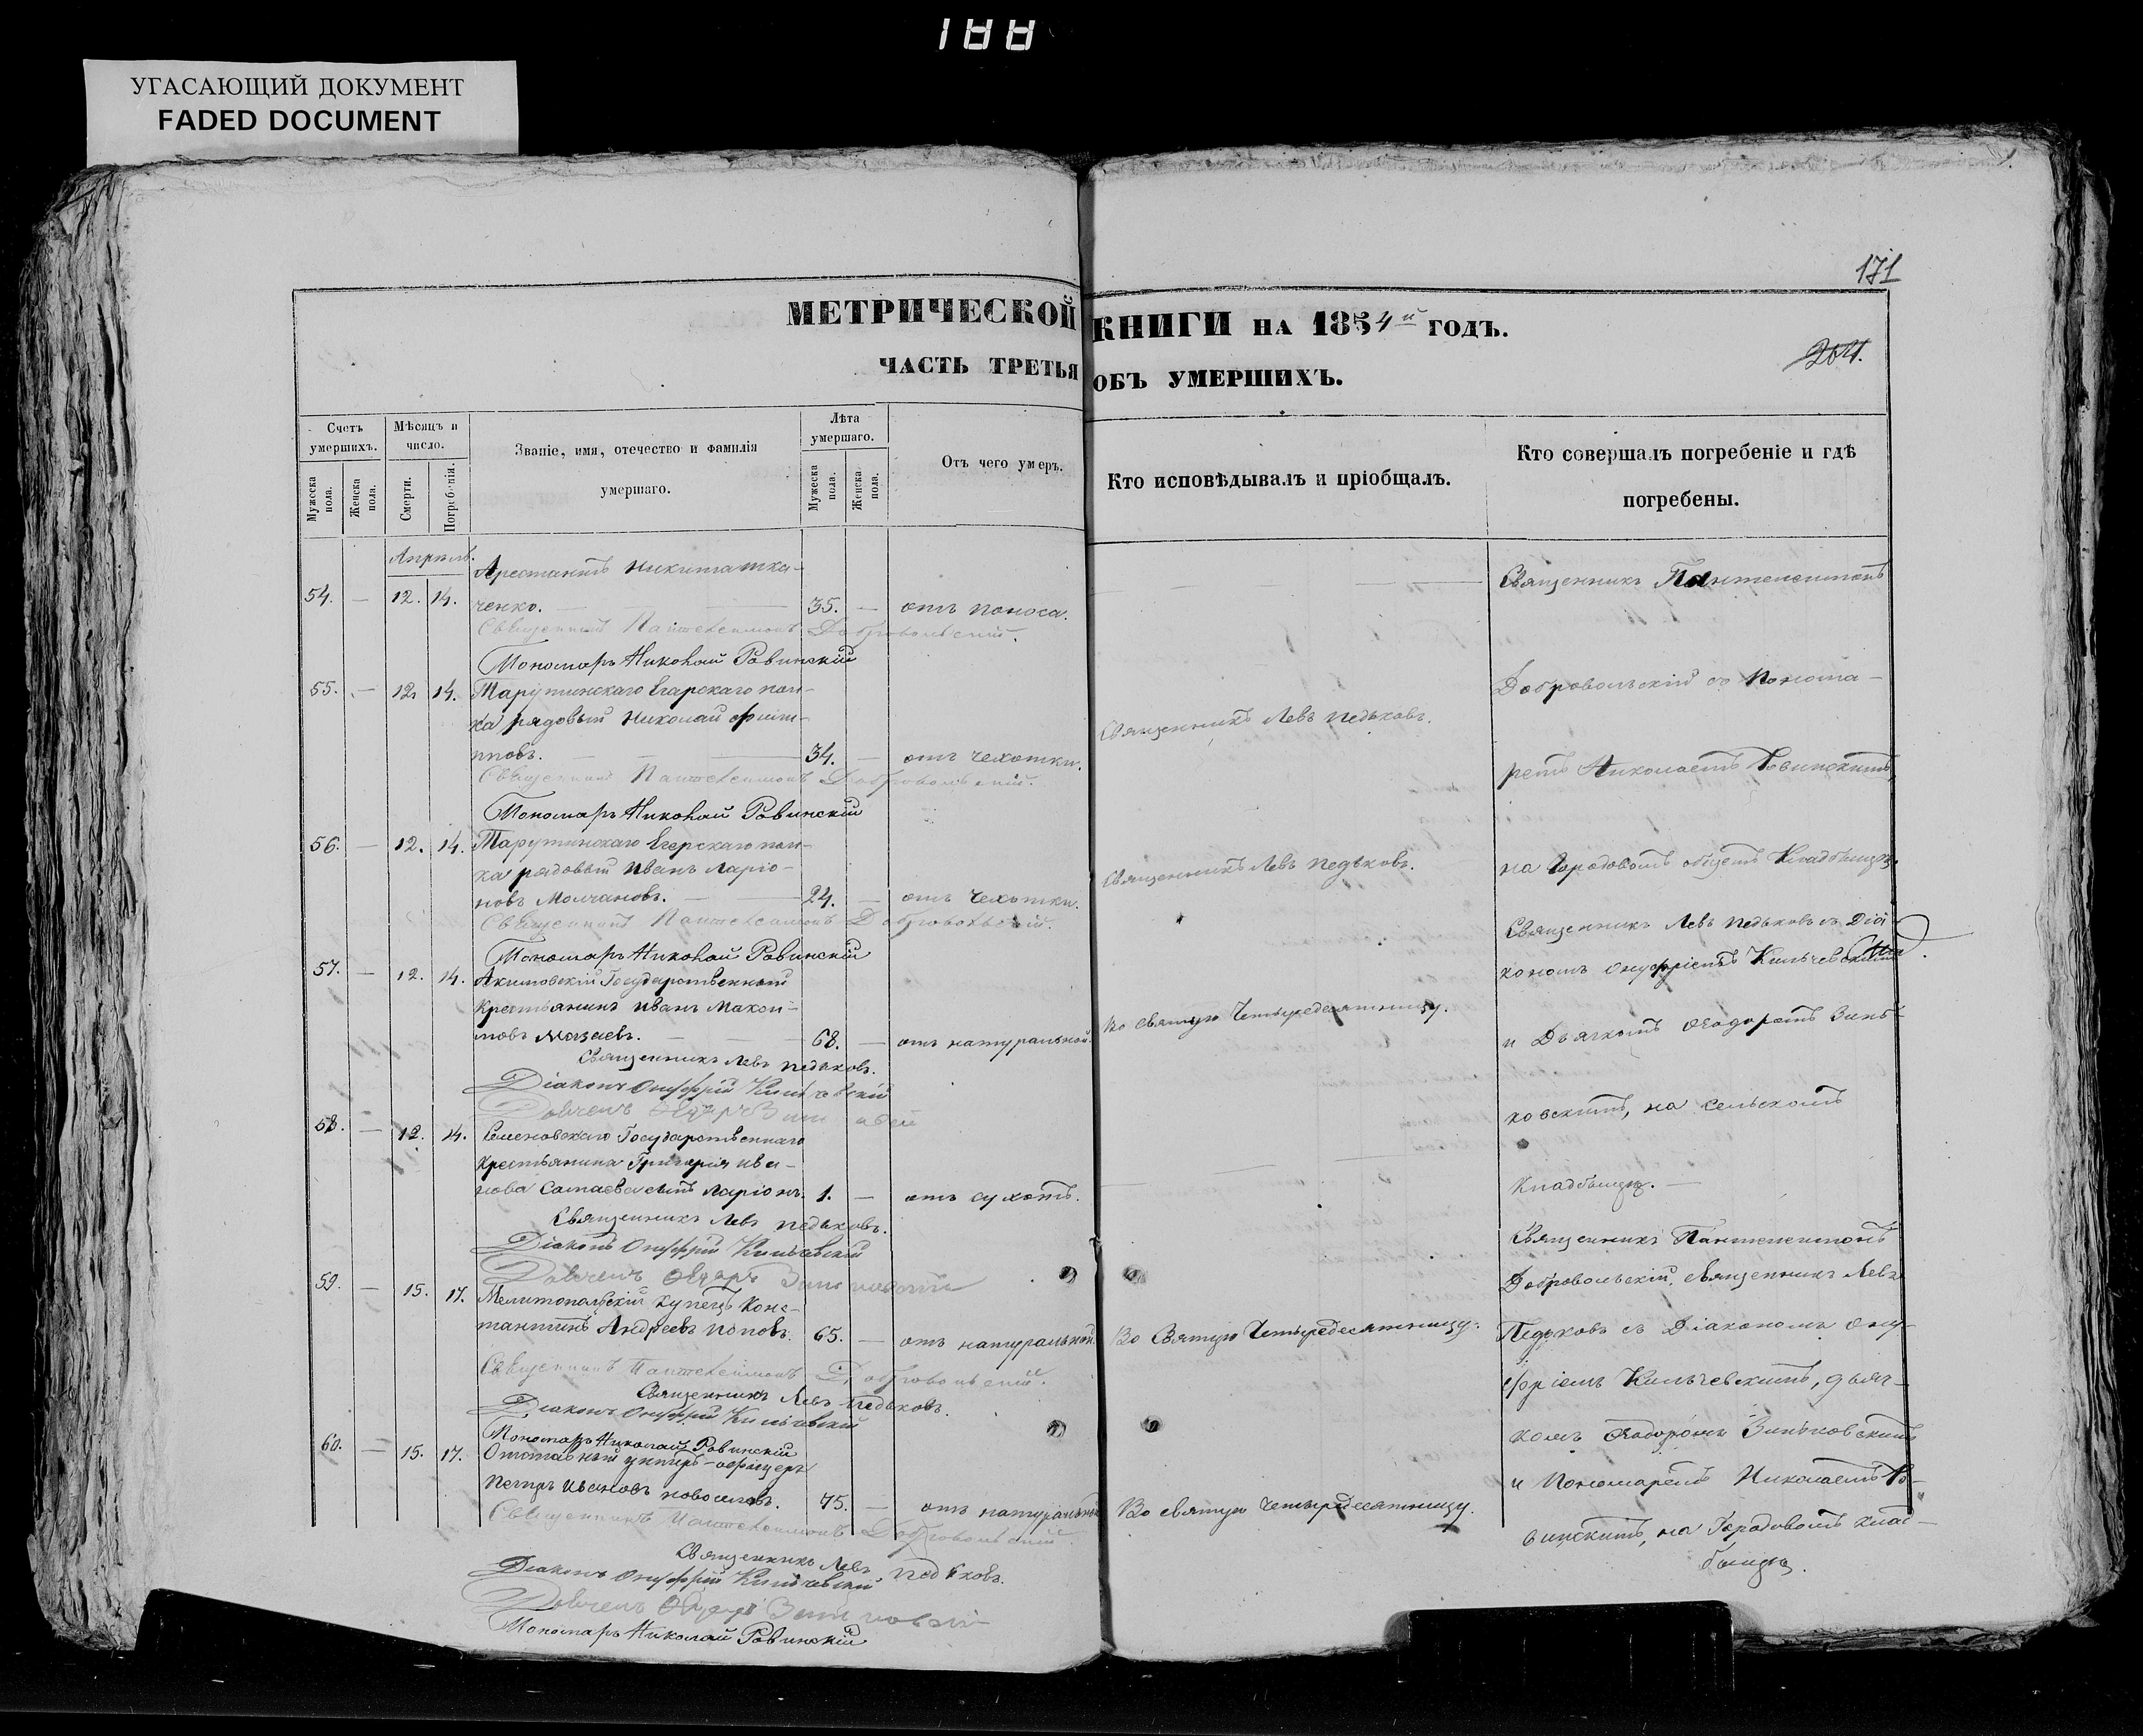 188
УГАСАЮЩИЙ ДОКУМЕНТ
FADED DOCUMENT
171
МЕТРИЧЕСКОЙ КНИГИ НА 1854й ГОДЪ.
204.
ЧАСТЬ ТРЕТЬЯ ОБЪ УМЕРШИХЪ.
Счетъ умершихъ.
Мужеска пола.
Женска пола.
Мѣсяцъ и число.
Смерти.
Погребенія.
Званіе, имя, отечество и фамилія
умершаго.
Лѣта умершаго.
Мужеска пола.
Женска пола.
Отъ чего умеръ.
Кто исповѣдывалъ и пріобщалъ.
Кто совершалъ погребеніе и гдѣ
погребены.
Апрѣль.
Арестантъ Никита тка-
54. — 12. 14. ченко. — 35. — отъ поноса.
Священникъ Пантелеимонъ Добровольскій.
Пономарь Николай Ровинскій
55. — 12. 14. Тарутинскаго Егарскаго пол-
ка рядовый Николай Филип-
повъ. — 34. — отъ чехотки. Священникъ Левъ Педьковъ.
Священникъ Пантелеимонъ Добровольскій.
Пономарь Николай Ровинскій
56. — 12. 14. Тарутинскаго Егерскаго пол-
ка рядовый Иванъ Ларіо-
новъ Молчановъ. — 24. — отъ чехотки. Священникъ Левъ Педьковъ.
Священникъ Пантелеимонъ Добровольскій.
Пономарь Николай Ровинскій
57. — 12. 14. Акимовскій Государственный
Крестьянинъ Иванъ
Мазаевъ. — 68. — отъ натуральной. Во Святую Четыредесятницу.
Священникъ Левъ Педьковъ.
Діаконъ Онуфрій Кильчевскій
58. — 12. 14. Семеновскаго Государственнаго
крестьянина Григорія Ива-
нова сынъ Ларіонъ. 1. — отъ сухотъ.
Священникъ Левъ Педьковъ.
Діаконъ Онуфрій Кильчевскій
59. — 15. 17. Мелитопольскій купецъ Конс-
тантинъ Андреевъ Поповъ. 65. — отъ натуральной. Во Святую Четыредесятницу.
Священникъ Пантелеимонъ Добровольскій.
Священникъ Левъ Педьковъ.
Діаконъ Онуфрій Кильчевскій
Пономарь Николай Ровинскій
60. — 15. 17. Отставный унтеръ-офицеръ
Петръ Ивановъ Новоселовъ. 75. — отъ натуральной Во святую четыредесятницу.
Священникъ Пантелеимонъ Добровольскій.
Священникъ Левъ Педьковъ.
Діаконъ Онуфрій Кильчевскій
Пономарь Николай Ровинскій
Священникъ Пантелеимонъ
Добровольскій съ Понома-
ремъ Николаемъ Ровинскимъ,
на Городовомъ общемъ Кладбищѣ.
Священникъ Левъ Педьковъ съ Діа
кономъ Онуфріемъ Кильчевскимъ
и Дьячкомъ Ѳеодоромъ Зинь-
ковскимъ, на Сельскомъ
Кладбищѣ. —
Священникъ Пантелеимонъ
Добровольскій, священникъ Левъ
Педьковъ съ Діакономъ Ону-
фріемъ Кильчевскимъ, дьяч-
комъ Ѳеодоромъ Зиньковскимъ
и Пономаремъ Николаемъ Ро-
винскимъ, на Городовомъ клад-
бищѣ.